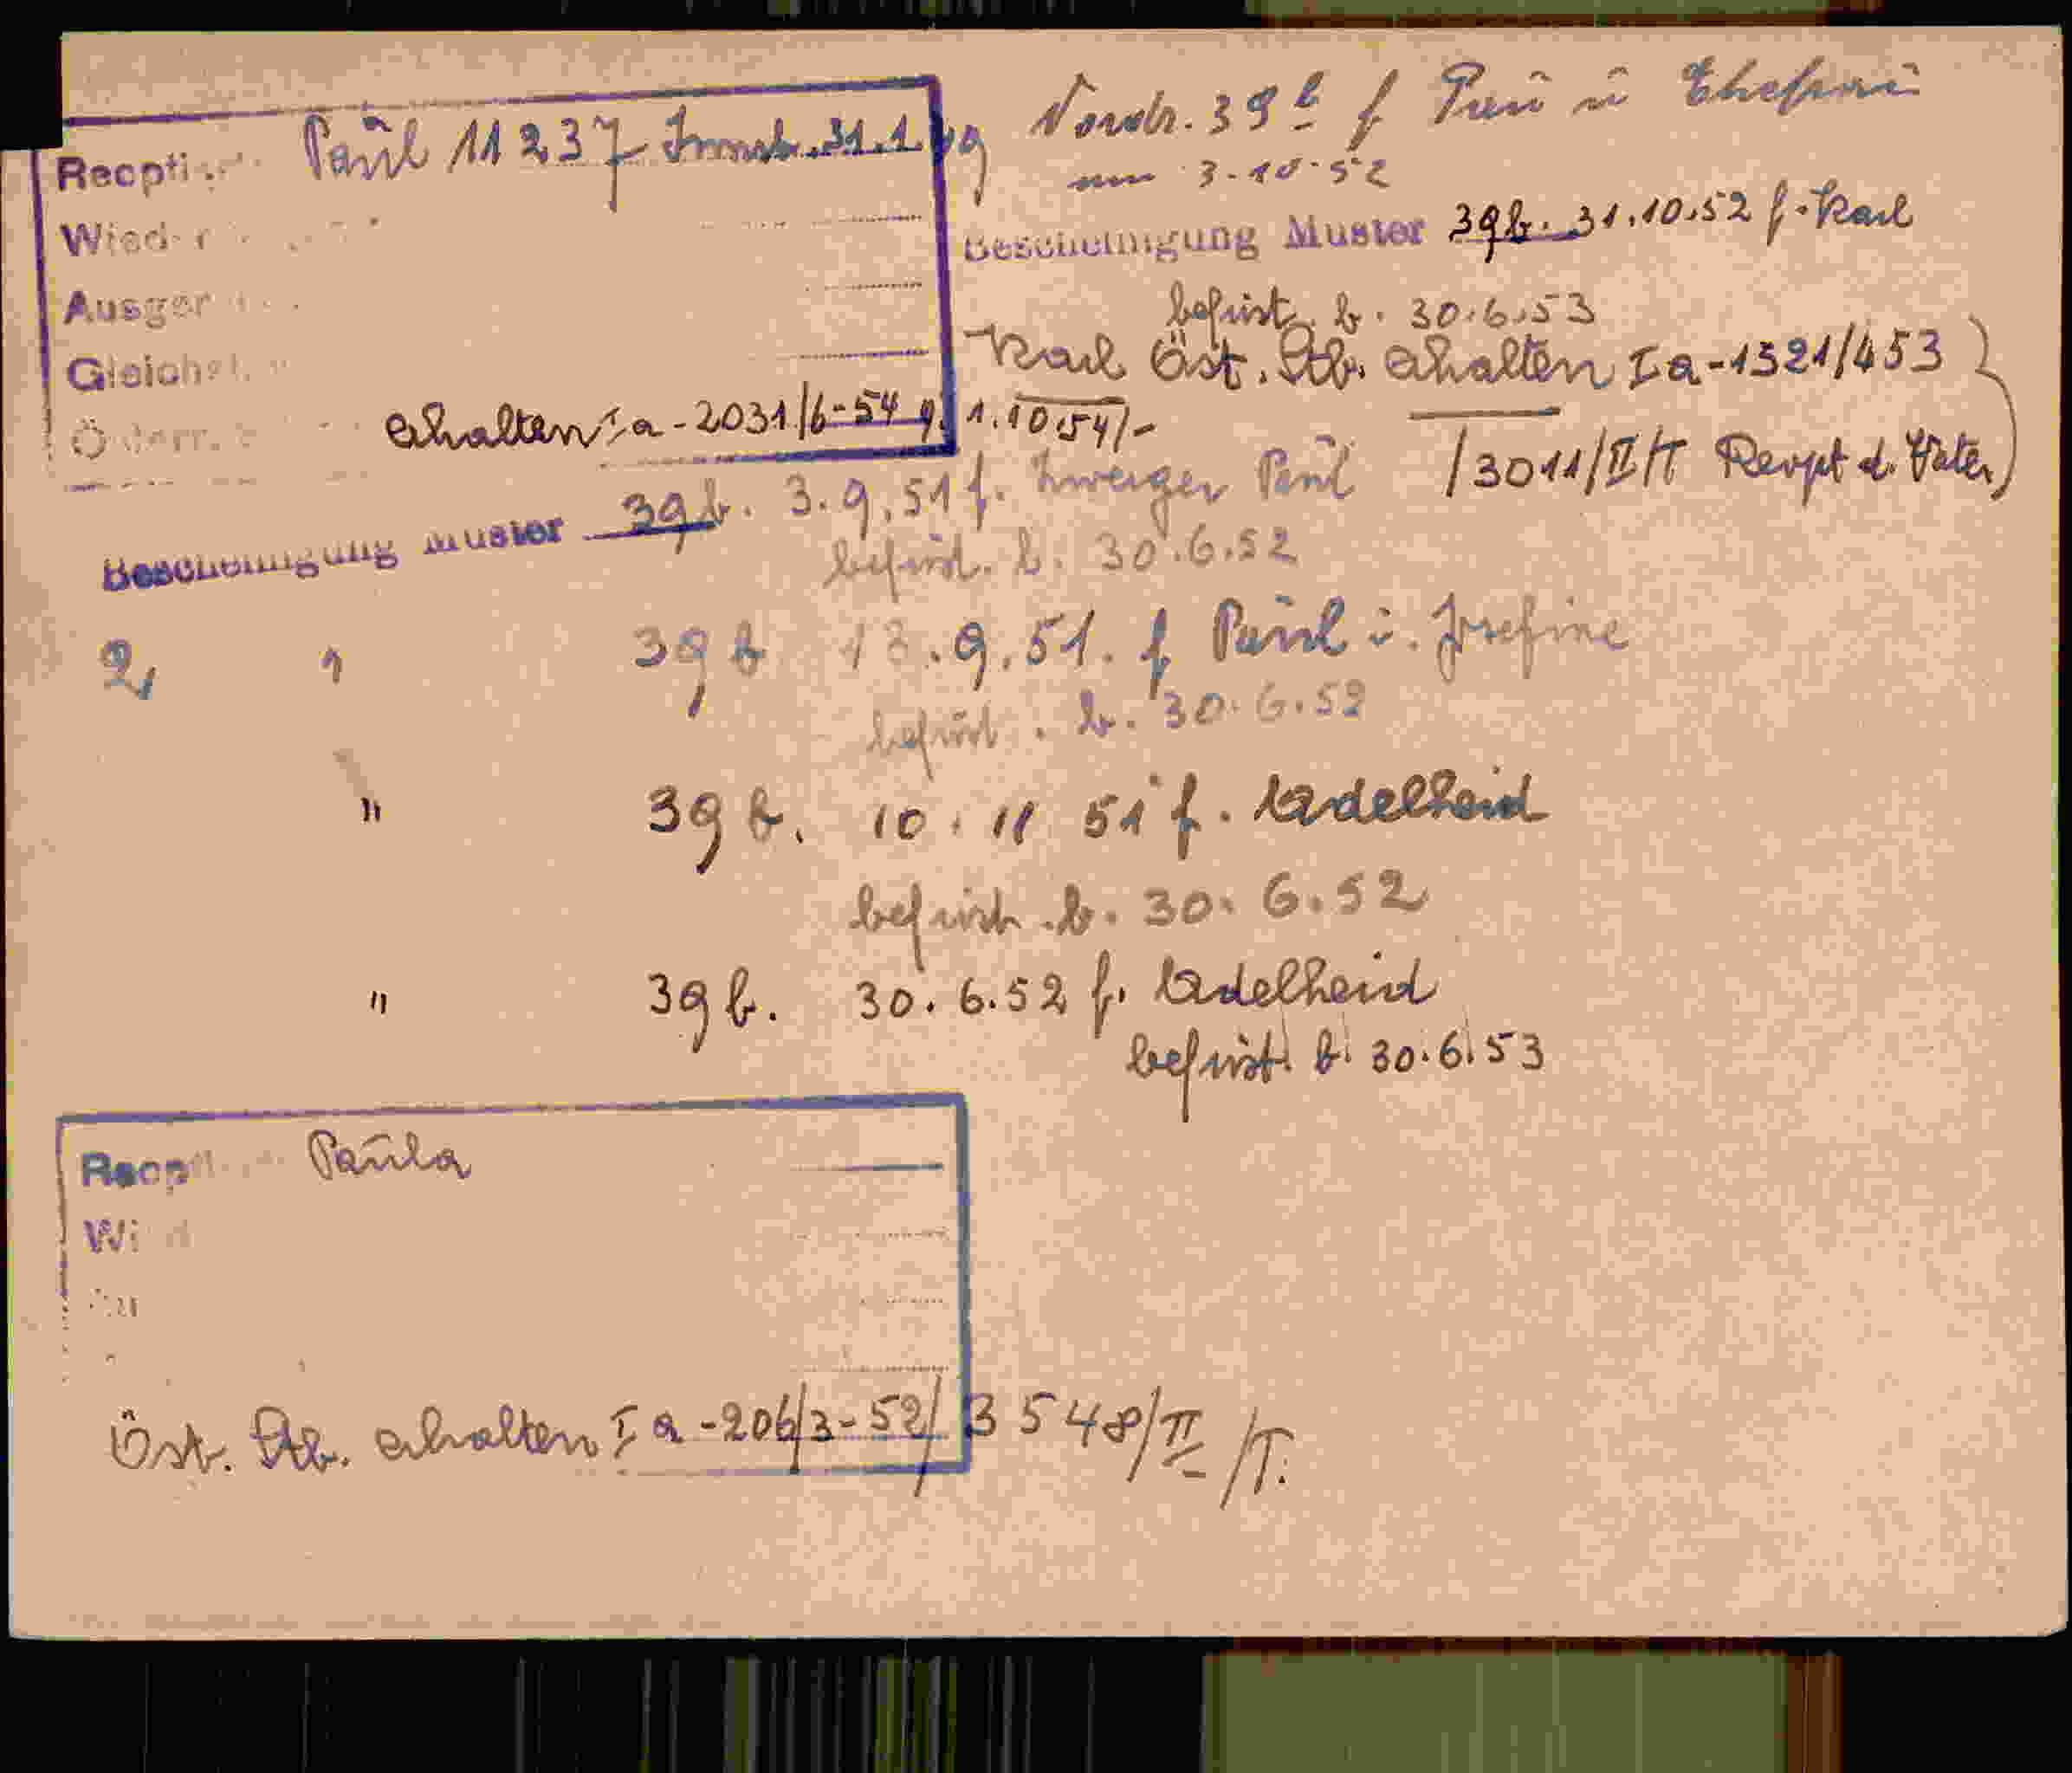 Paul 11237 Innsb. 31.1.
Reopti
Wieder
Ausger
Gleichst
Ö terr.
erhalten Ia-2031/6-54 g. 1.10.54/-
39b f Paul u Ehefrau
3-10-52
Bescheinigung Muster 39b. 31.10.52 f. Karl
befrist. b. 30.6.53
Karl Öst. Stb. erhalten Ia-1321/453
/3011/II/T d. Vater)
Bescheinigung Muster 39b. 3.9.51 f. Zweiger Paul
befrist. b. 30.6.52
2, " 39b 13.9.51. f Paul u. Josefine
befrist. b. 30.6.52
" 39b. 10.11 51 f. Adelheid
befrist. b. 30.6.52
" 39b. 30.6.52 f. Adelheid
befrist. b. 30.6.53
Reop Paula
Wi d
Öst. Stb. erhalten Ia-206/3-52/3548/II/T.